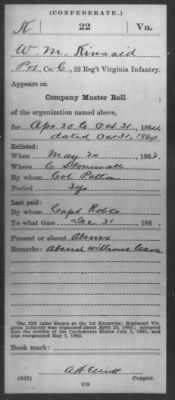 (CONFEDERATE.)
K 22 Va.
W. M. Kinsaid
Pvt, Co. C, 22 Reg't Virginia Infantry.
Appears on
Company Muster Roll
of the organization named above,
for Apr 30 to Oct 31, 1864
dated Oct 31, 1864
Enlisted:
When May 20, 186
Where
By whom Col Patton
Period 3 yrs
Last paid:
By whom Capt
To what time Dec 31, 186
Present or absent Absent
Remarks: Absent without leave
The 22d (also known as the 1st Kanawha) Regiment Virginia Infantry was organized about
into the service of the Confederate States July 2, 1861, and was reorganized May 1, 1862.
Book mark:
(642) Copyist.